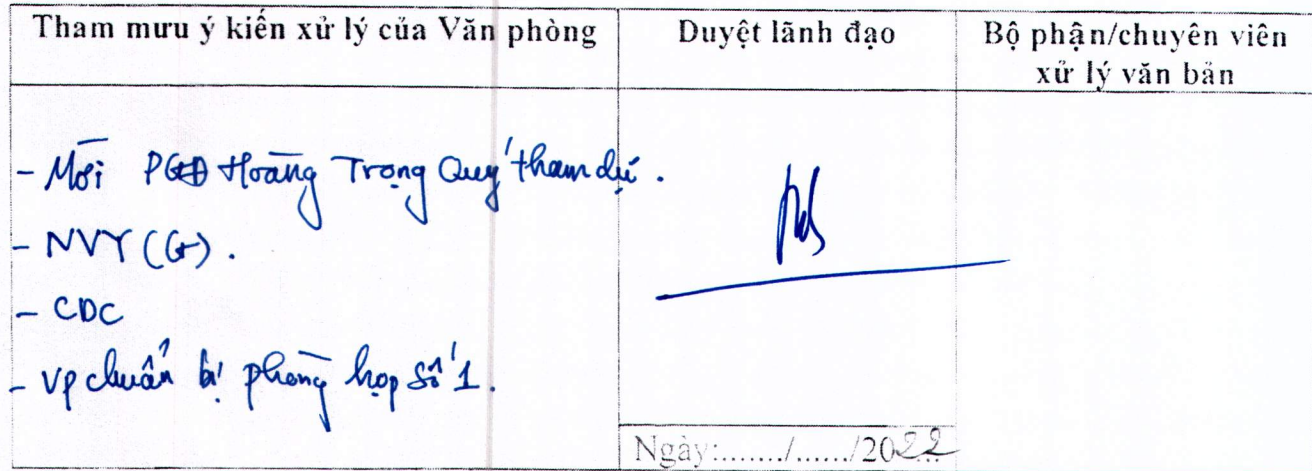 Tham mưu ý kiến xử lý của Văn phòng
Duyệt lãnh đạo
Bộ phận/chuyên viên
xử lý văn bản
- Mời PGĐ Hoàng Trọng Quý tham dự.
- NVY (G).
- CDC
- VP chuẩn bị phòng họp số 1.
Ngày:......./......./2022